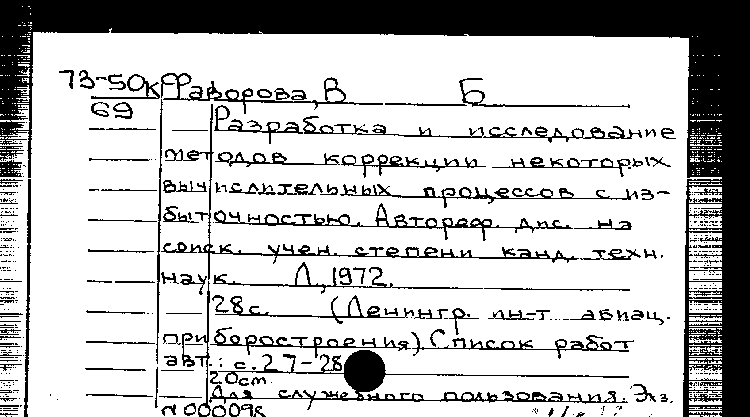 73-50к Фаворова, В Б
69
Разработка и исследование
методов коррекции некоторых
вычислительных процессов с из-
быточностью. Автореф. дис. на
соиск. учен. степени канд. техн.
наук. Л., 1972.
28с. (Ленингр. ин-т авиац.
приборостроения). Список работ
авт.: с. 27-28
20см.
Для служебного пользования. Экз.